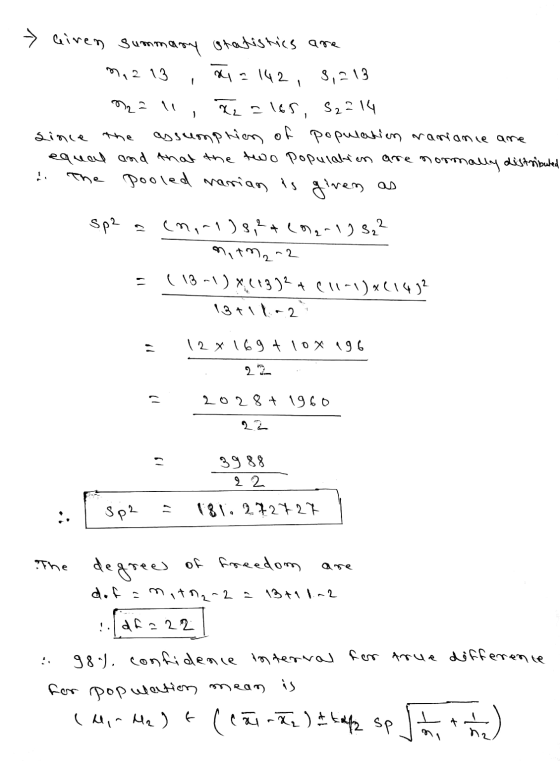 → Given summary statistics are
n₁ = 13 , x̄₁ = 142 , s₁ = 13
n₂ = 11 , x̄₂ = 165, s₂ = 14
Since the assumption of population variance are
equal and that the two population are normally distributed
∴ The pooled varian is given as
Sp² = (n₁-1) s₁² + (n₂-1) s₂²
n₁+n₂-2
= (13-1)×(13)² + (11-1)×(14)²
13+11-2
= 12×169 + 10×196
22
= 2028 + 1960
22
= 3988
22
∴ Sp² = 181.272727
The degrees of freedom are
d.f = n₁+n₂-2 = 13+11-2
∴ df = 22
∴ 98%. confidence interval for true difference
for population mean is
(μ₁-μ₂) ∈ ((x̄₁-x̄₂) ± tα/2 sp √(1/n₁ + 1/n₂))